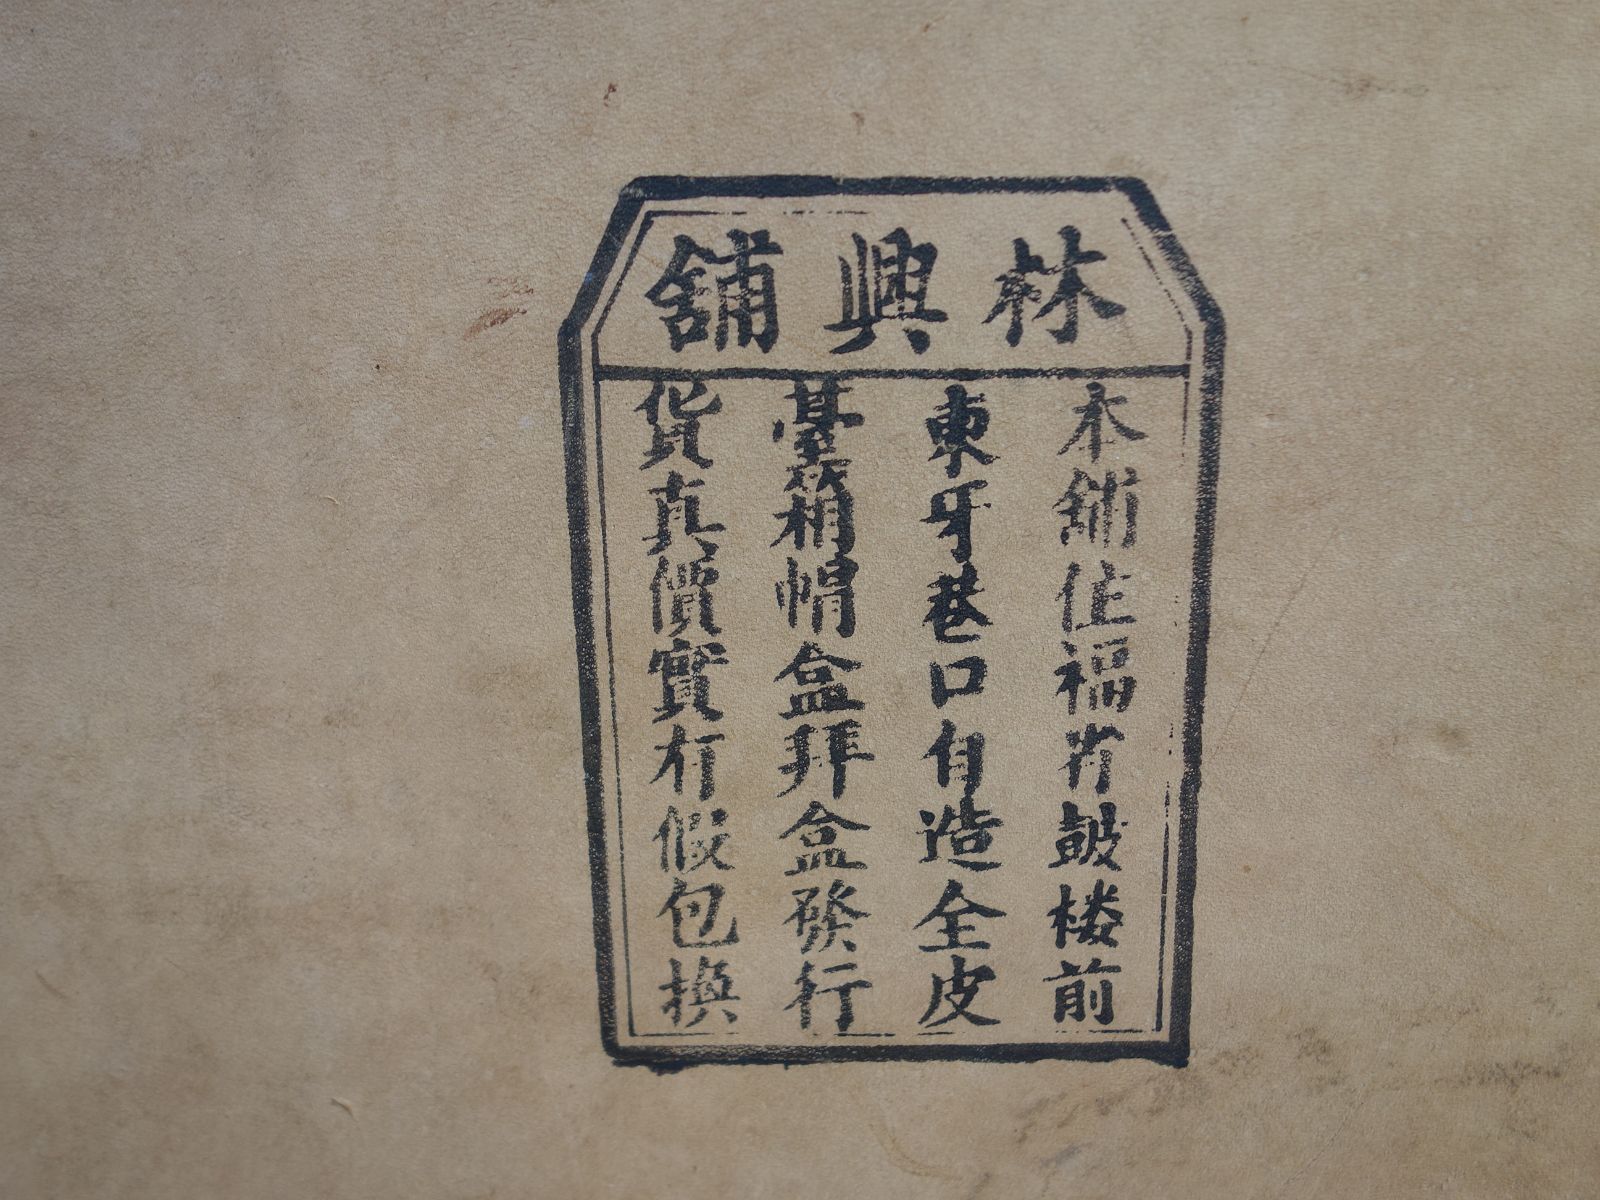 林興舖
本舖住福省鼓楼前
東牙巷口自造全皮
臺箱帽盒拜盒發行
貨真價實有假包換